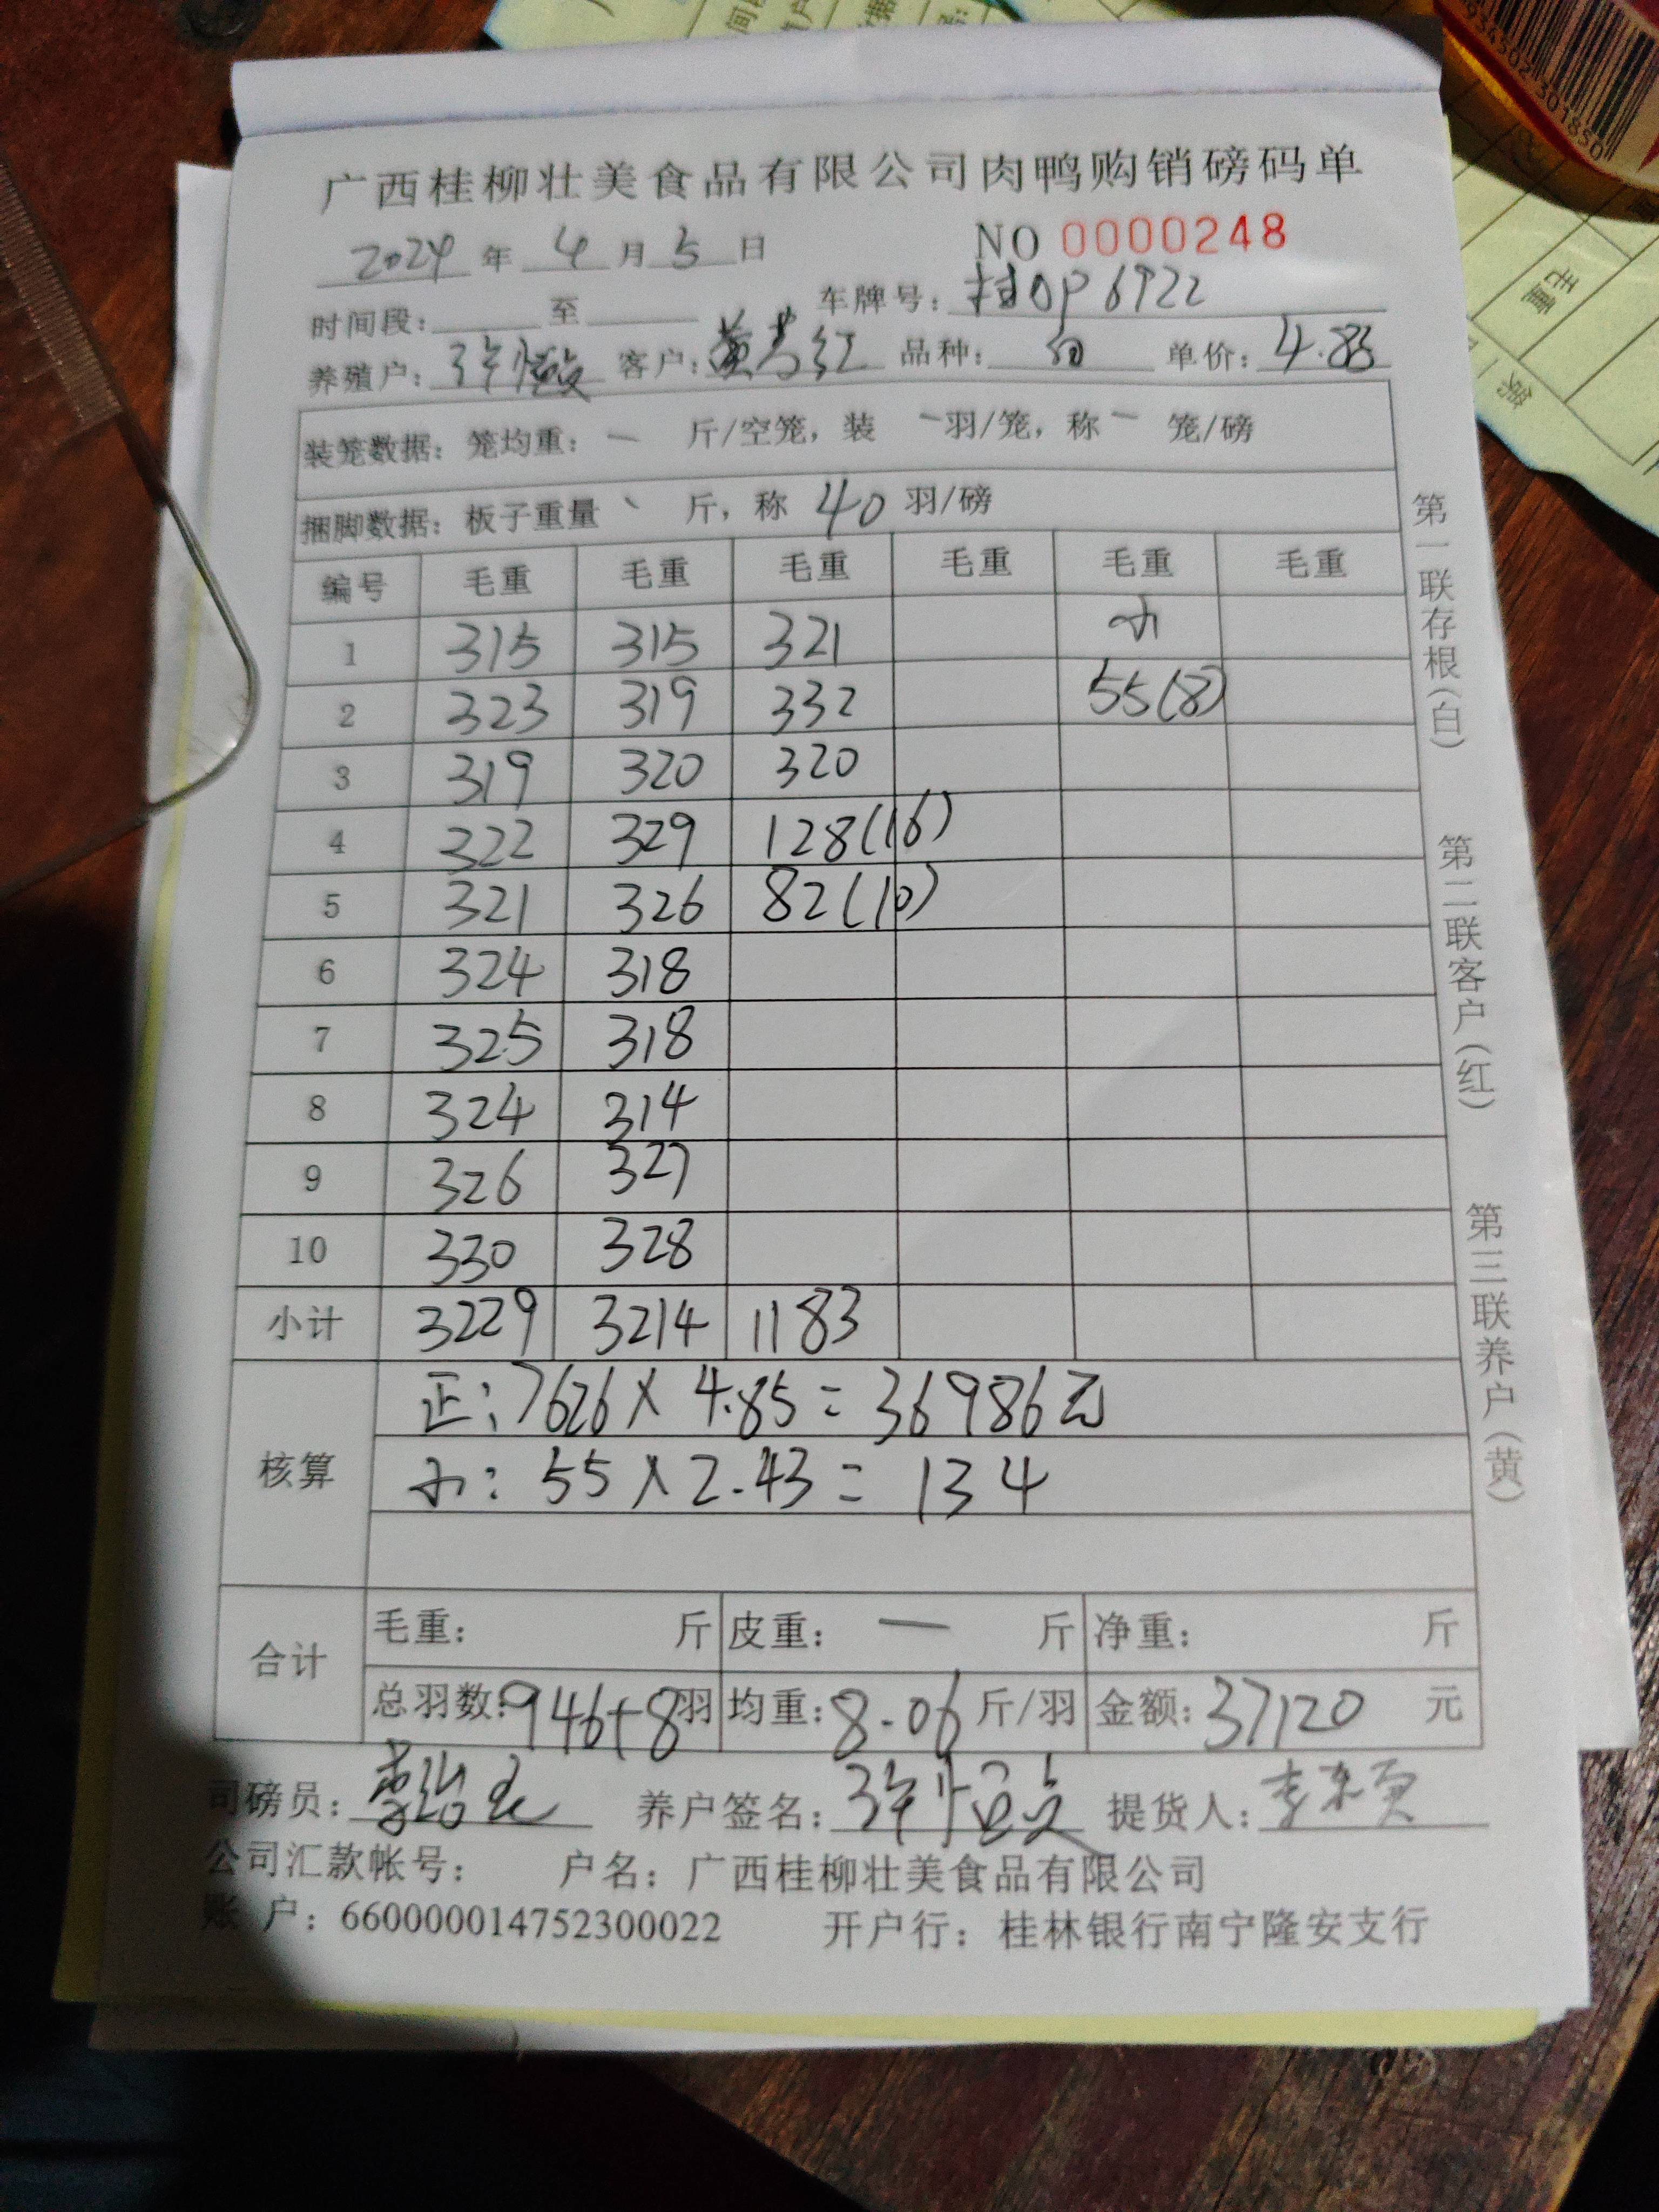 广西桂柳壮美食品有限公司肉鸭购销磅码单
2024 年 4 月 5 日 NO 0000248
时间段: 至 车牌号: 桂0P6922
养殖户: 客户: 黄 红 品种: 单价: 4.85
装笼数据: 笼均重: 一 斤/空笼, 装 一羽/笼, 称 一 笼/磅
捆脚数据: 板子重量 、 斤, 称 40 羽/磅
编号 毛重 毛重 毛重 毛重 毛重 毛重
1 315 315 321 小
2 323 319 332 55(8)
3 319 320 320
4 322 329 128(16)
5 321 326 82(10)
6 324 318
7 325 318
8 324 314
9 326 327
10 330 328
小计 3229 3214 1183
核算 正: 7626 X 4.85 = 36986元
小: 55 X 2.43 = 134
合计 毛重: 斤 皮重: 一 斤 净重: 斤
总羽数: 946+8羽 均重: 8.06 斤/羽 金额: 37120 元
司磅员: 养户签名: 提货人: 李
公司汇款帐号: 户名: 广西桂柳壮美食品有限公司
账 户: 660000014752300022 开户行: 桂林银行南宁隆安支行
第一联存根(白)
第二联客户(红)
第三联养户(黄)
重毛